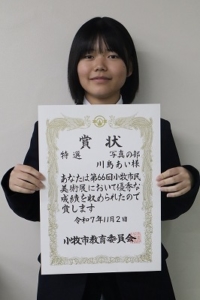 賞状
特選 写真の部
川島あい様
あなたは第66回小牧市民
美術展において優秀な
成績を収められたので
賞します
令和7年11月2日
小牧市教育委員会